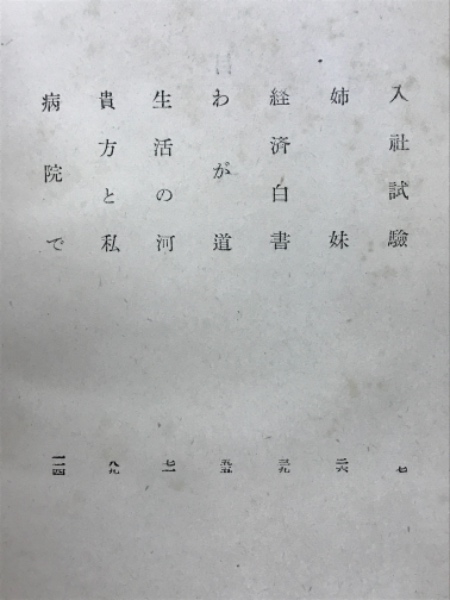 入社試験 七
姉妹 二六
経済白書 三九
わが道 五五
生活の河 七一
貴方と私 八九
病院で 一一四